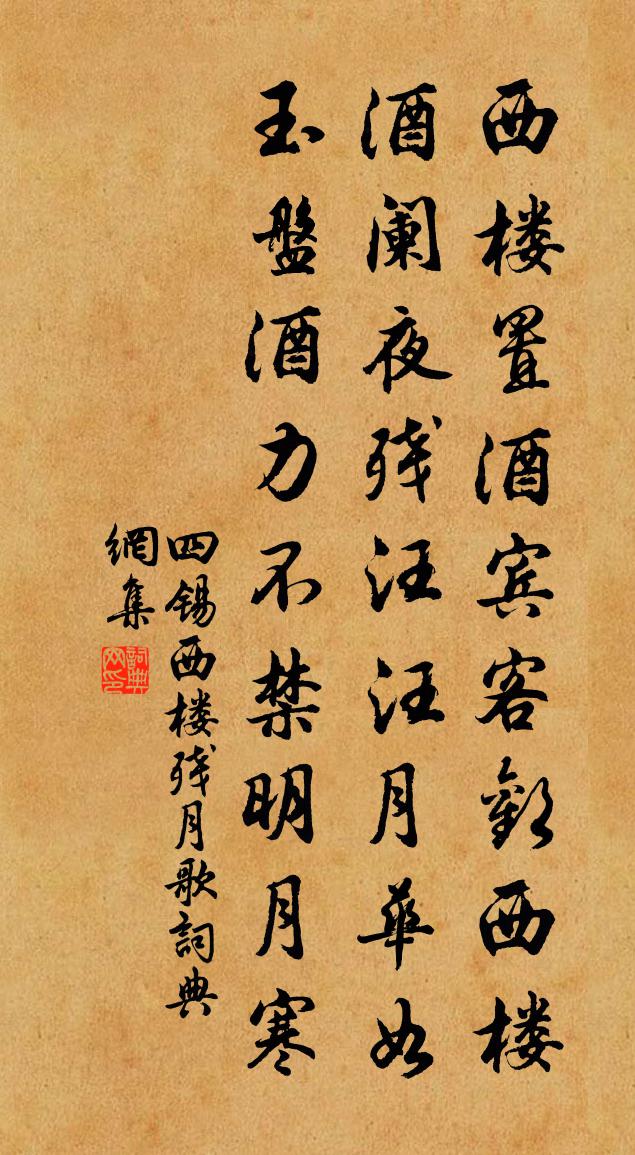 西楼置酒宾客歡西楼
酒阑夜残汪汪月華如
玉盤酒力不禁明月寒
四锡西楼残月歌詞典
網集
詞典
网印